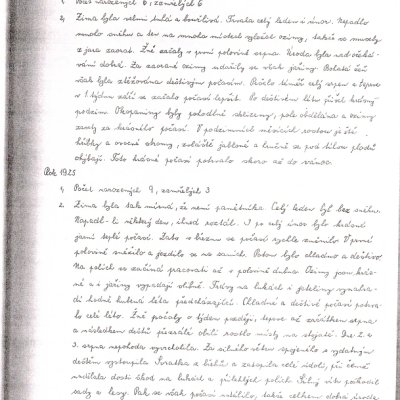 1, Počet narozených 6, zemřelých 6
2, Zima byla velmi dlouhá a kouřlivá. Trvala celý leden i únor. Napadlo
mnoho sněhu a ten na mnoha místech vyležel oziny, takže se musely
z jara zaorat. Žně začaly v první polovině srpna. Úroda byla nad očeká-
vání dobrá. Za zaorané oziny nahradily se však jařiny. Bohatá žeň
však byla ztěžována deštivým počasím. Pršelo téměř celý srpen a teprve
v 1. týdnu září se začalo počasí lepšit. Po deštivém létu přišel krásný
podzim. Okopaniny byly pohodlně sklizeny, pole obdělána a oziny
zasety za krásného počasí. V podzimních měsících rostou ještě
hříbky a ovocné stromy, zvláště jabloně a hrušně se pod tíhou plodů
ohýbají. Toto krásné počasí potrvalo skoro až do vánoc.
Rok 1925
1, Počet narozených 9, zemřelých 3
2, Zima byla tak mírná, že není pamětníka. Celý leden byl bez sněhu.
Napadl-li některý den, ihned roztál. I po celý únor bylo krásné
jarní teplé počasí. Zato v březnu se počasí rychle změnilo. V první
polovině sněžilo a jezdilo se na saních. Potom bylo chladno a deštivo.
Na polích se začíná pracovati až v polovině dubna. Oziny jsou krás-
né a i jařiny vypadají slibně. Trávy na lukách i jeteliny vynahra-
dí hodně kruté léta předcházející. Chladné a deštivé počasí potrva-
lo celé léto. Žně počaly o týden později, teprve až začátkem srpna
a následkem dešťů přezrálé obilí rostlo místy na stojatě. Dne 2. a
3. srpna nepohoda vyvrcholila. Za silného větru spojeného s vydatným
deštěm vystoupila Svratka z břehů a zatopila celé údolí, při čemž
nadělala dosti škod na lukách a přilehlých polích. Silný vítr poškodil
sady a lesy. Pak se však počasí ustálilo, takže celkem dobrá úroda